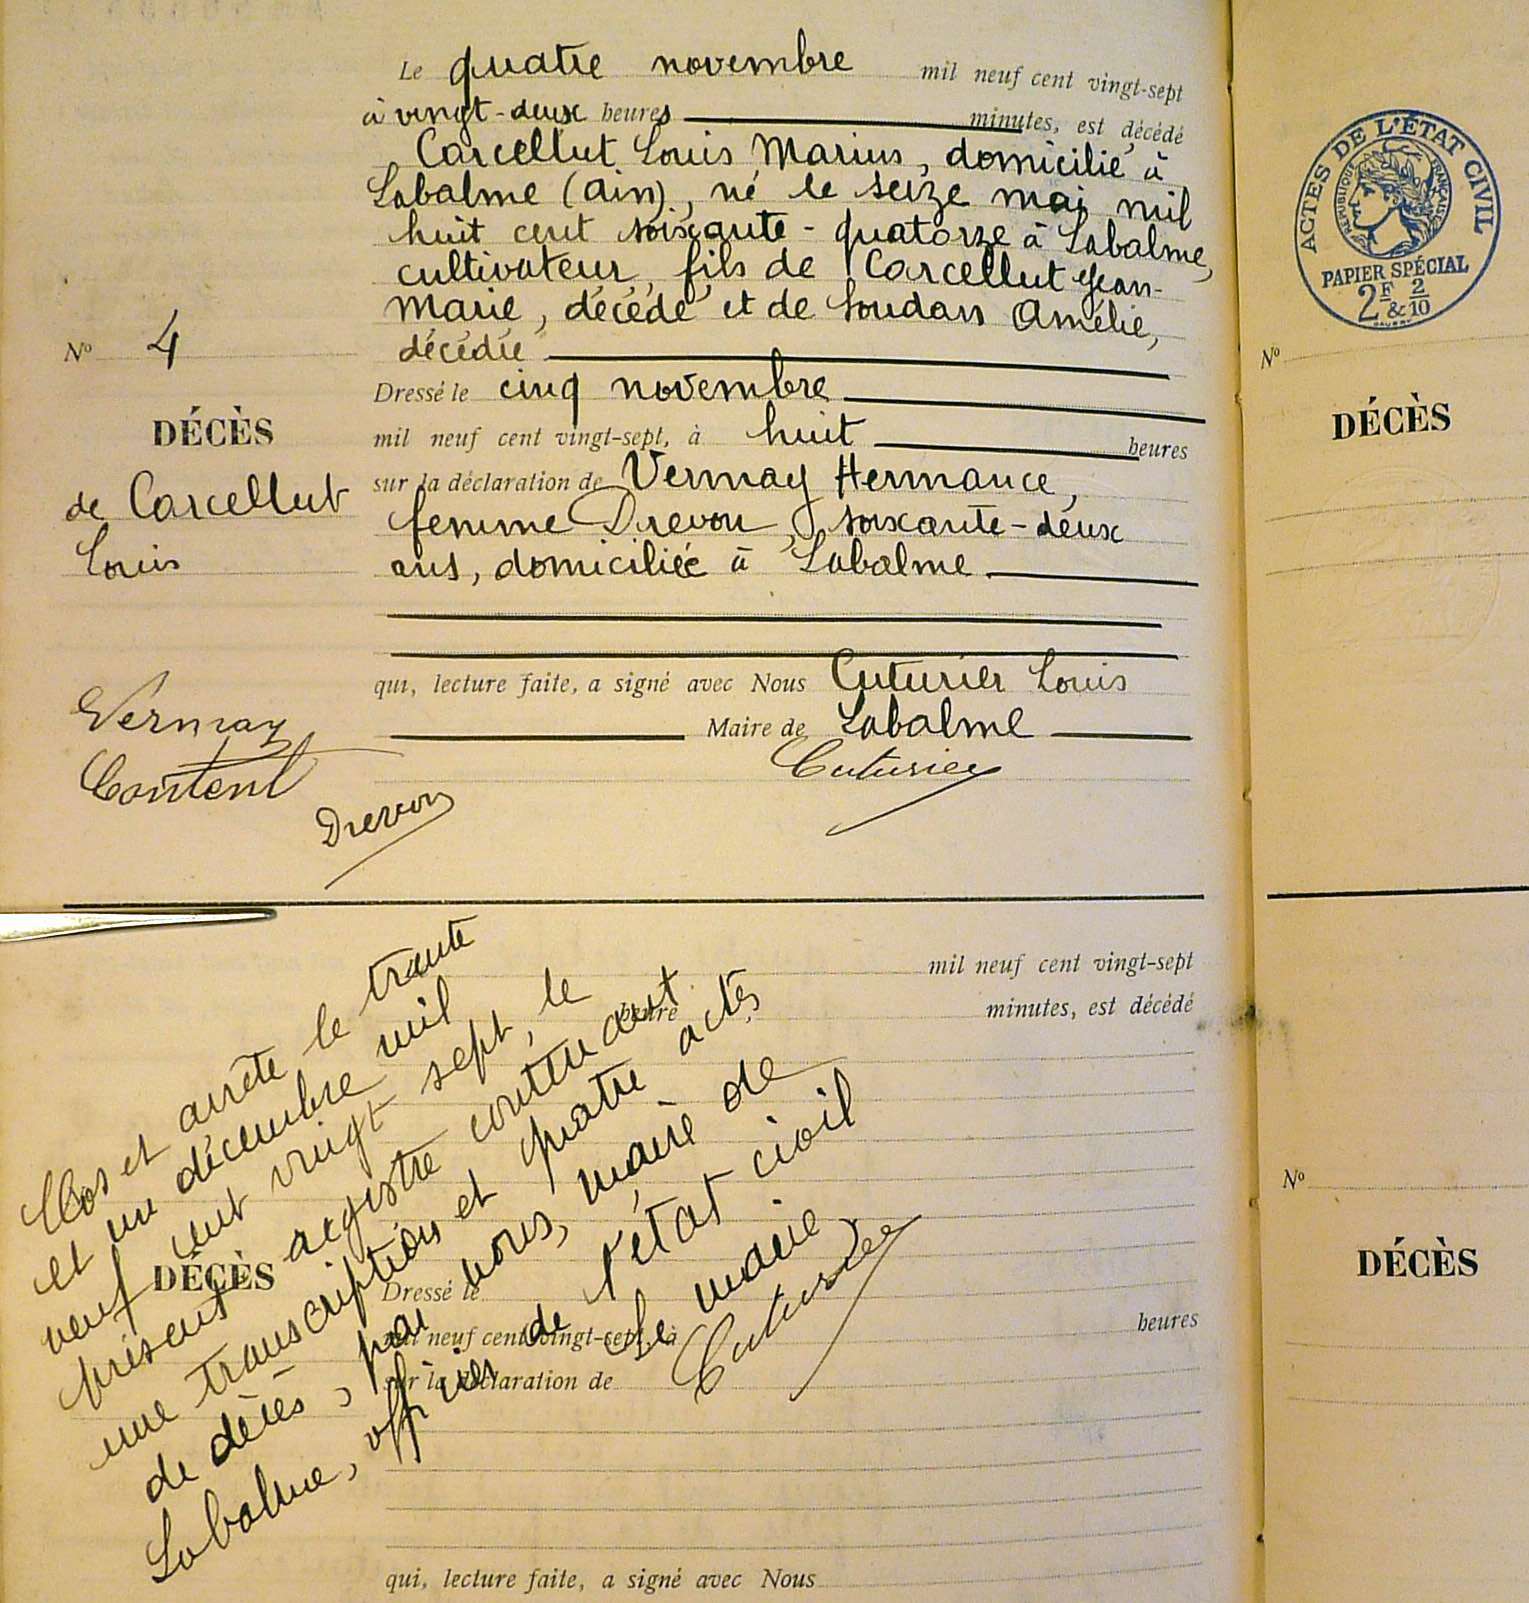 Le quatre novembre mil neuf cent vingt-sept
à vingt-deux heures minutes, est décédé
Carcellut Louis Marius, domicilié à
Labalme (Ain), né le seize mai mil
huit cent soixante-quatorze à Labalme,
cultivateur, fils de Carcellut Jean-
Marie, décédé et de Soudan Amélie,
décédée
Nº 4
DÉCÈS
de Carcellut
Louis
Dressé le cinq novembre
mil neuf cent vingt-sept, à huit heures
sur la déclaration de Vermay Hermance,
femme Drevon, soixante-deux
ans, domiciliée à Labalme
qui, lecture faite, a signé avec Nous Cuturier Louis
Maire de Labalme
Vermay
Content
Drevon
Cuturier
mil neuf cent vingt-sept
heure minutes, est décédé
DÉCÈS
Dressé le
mil neuf cent vingt-sept, à heures
sur la déclaration de
qui, lecture faite, a signé avec Nous
Clos et arrêté le trente
et un décembre mil
neuf cent vingt sept, le
présent registre contenant
une transcription et quatre actes
de décès, par nous, maire de
Labalme, officier de l'état civil
Le maire
Cuturier
ACTES DE L'ÉTAT CIVIL
RÉPUBLIQUE FRANÇAISE
PAPIER SPÉCIAL
2F & 2/10
Nº
DÉCÈS
Nº
DÉCÈS